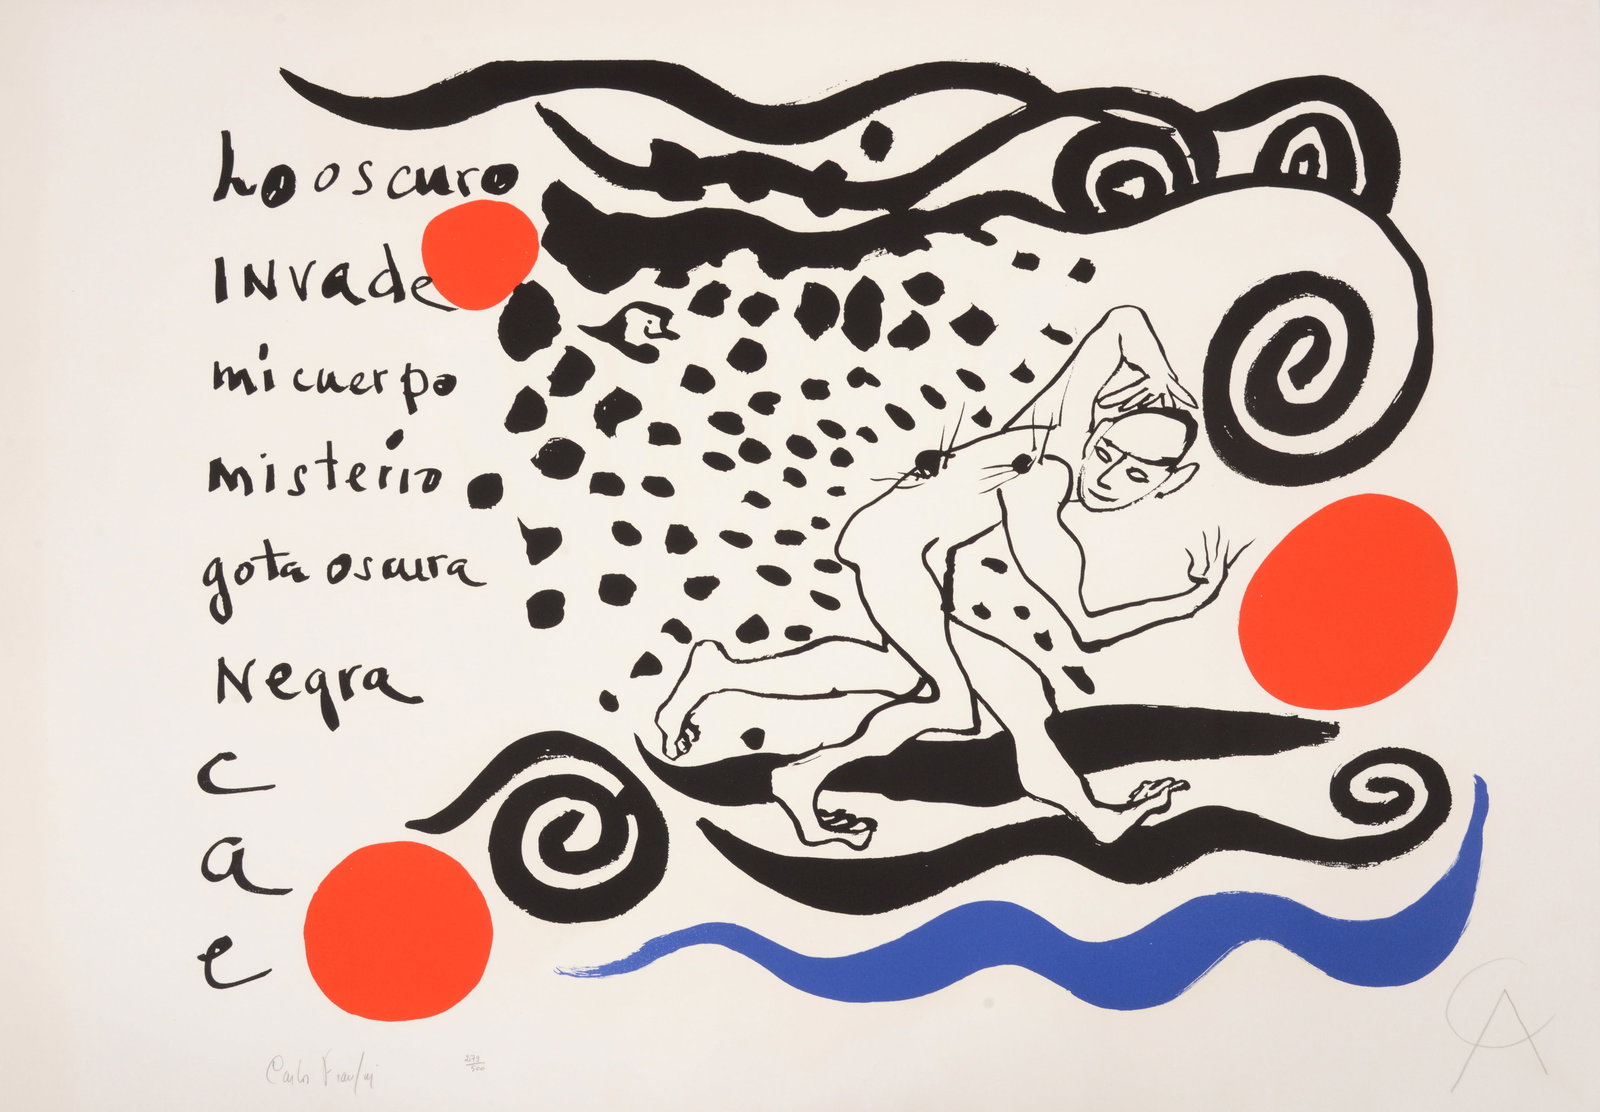 Lo oscuro
INVade
mi cuerpo
misterio
gota oscura
Negra
c
a
e
Carlos Franqui
279/500
CA